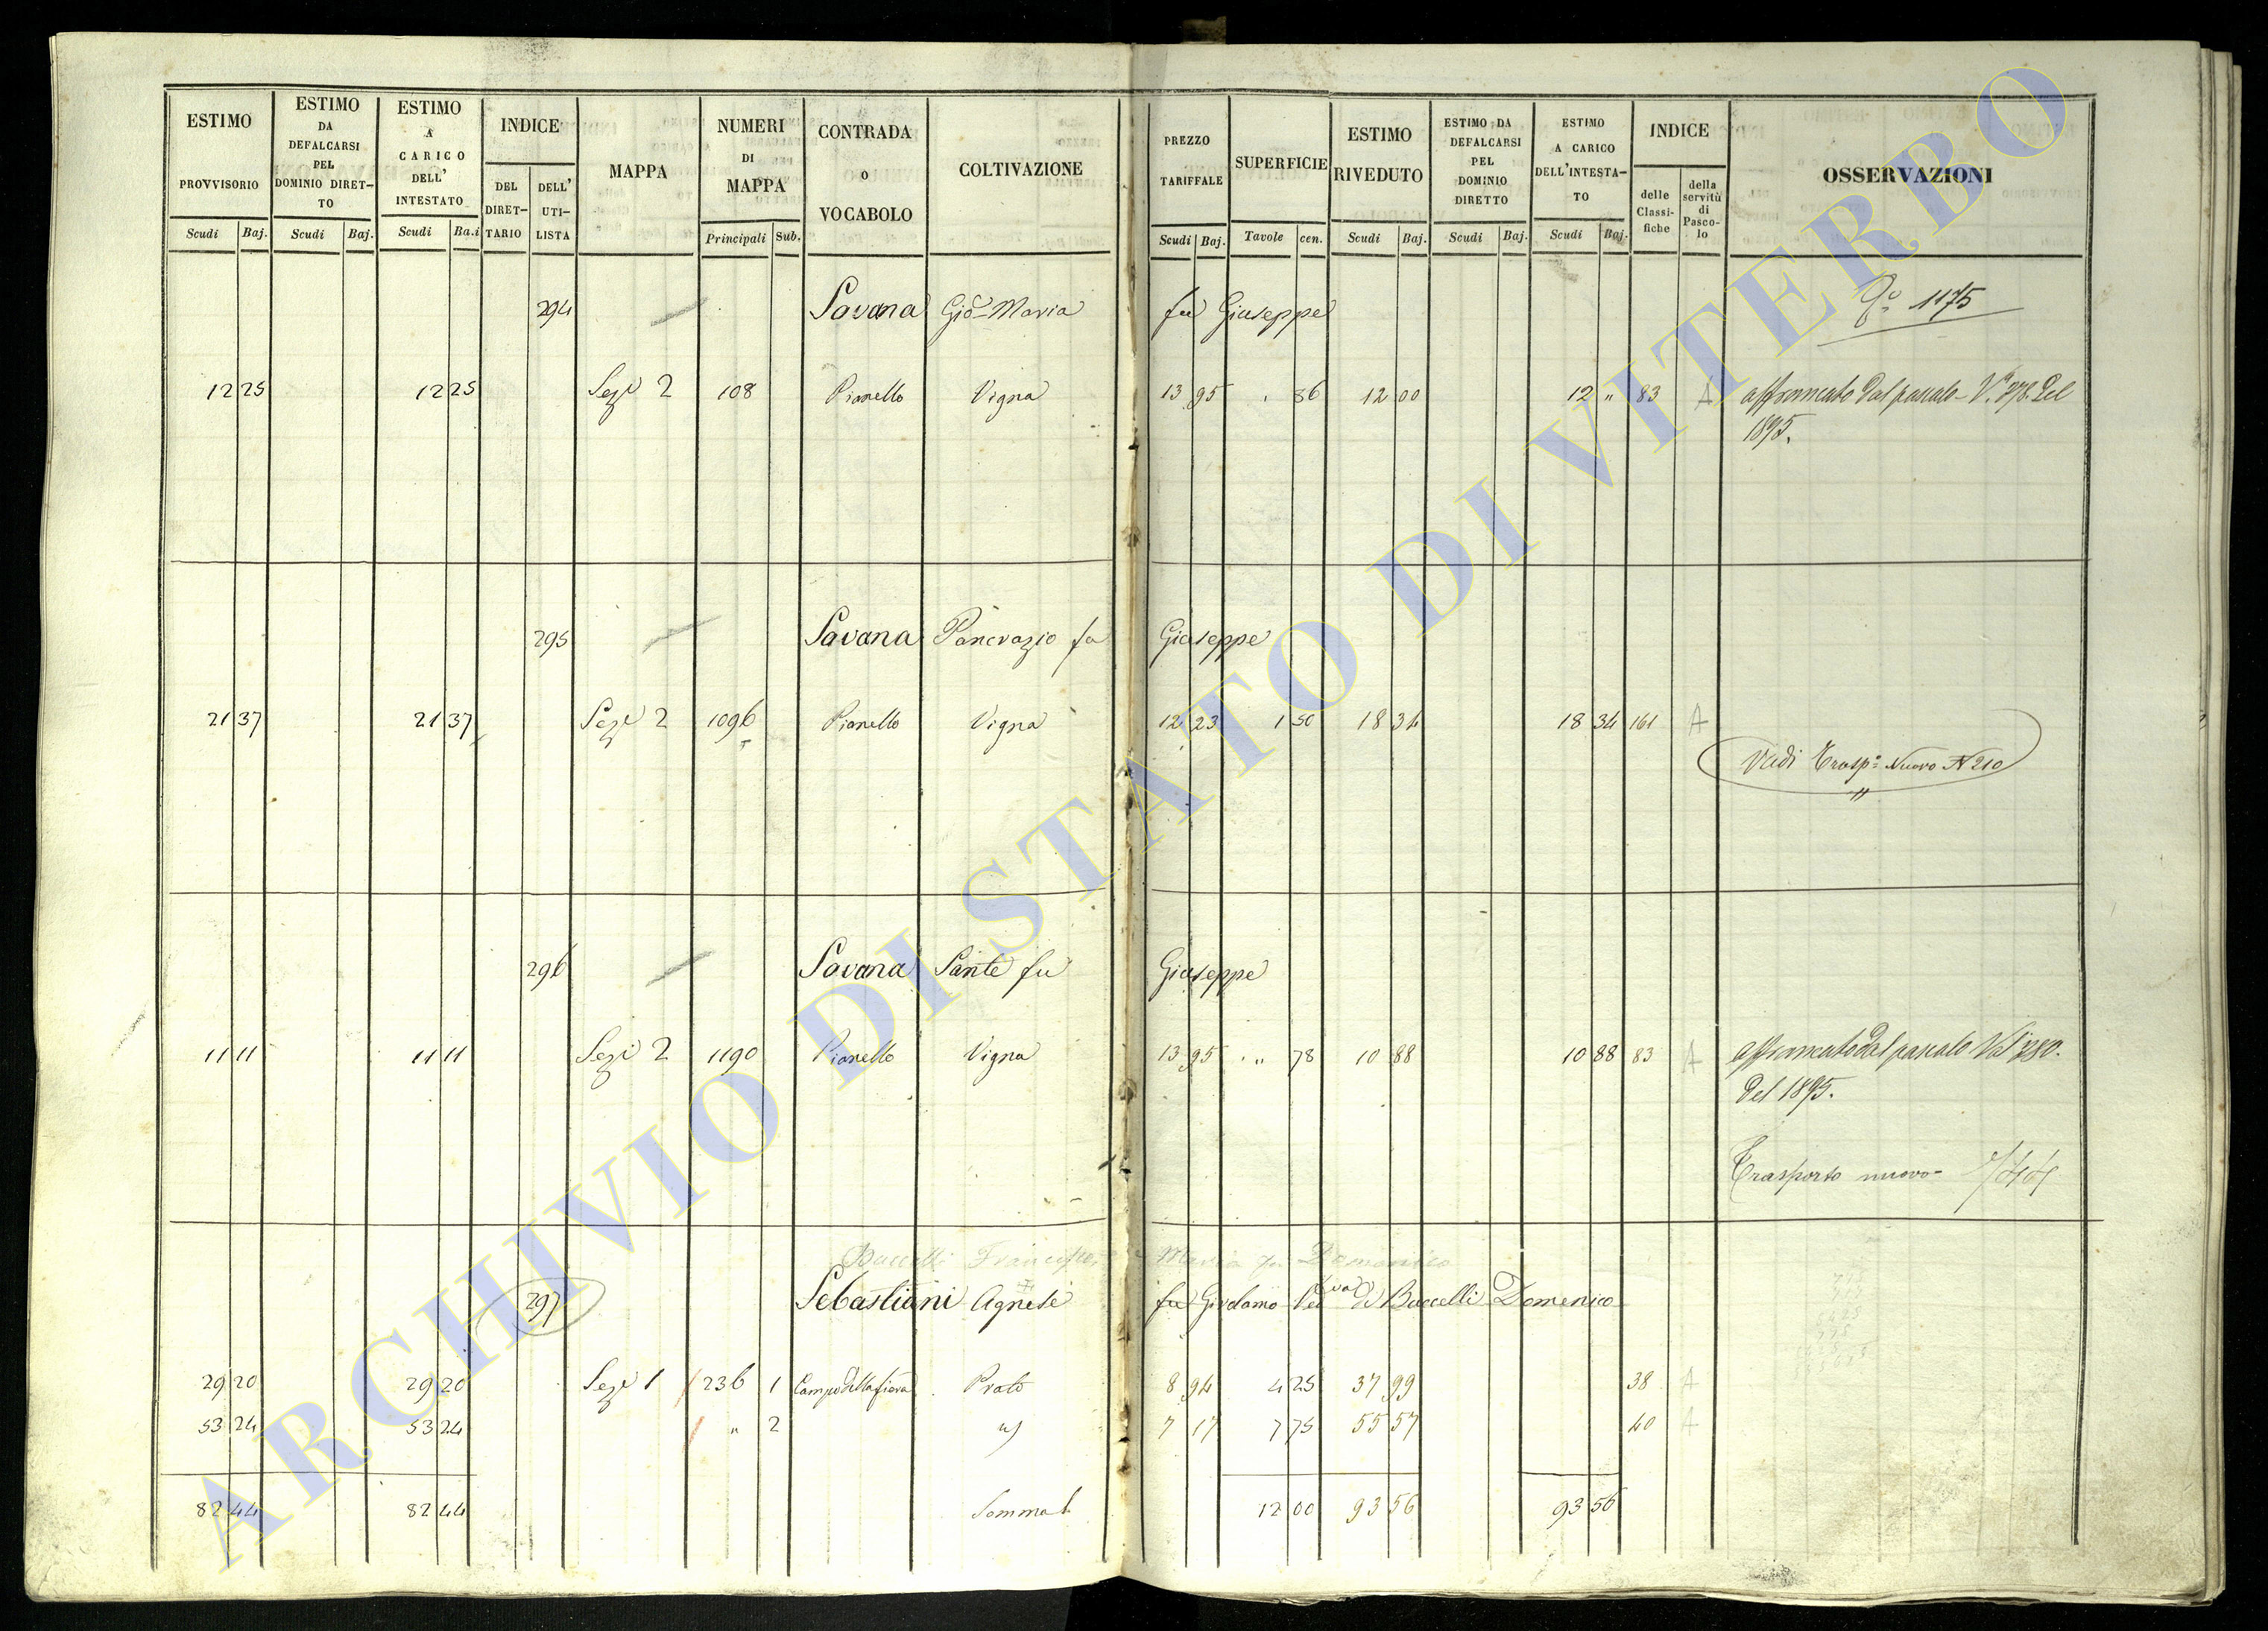 ESTIMO PROVVISORIO Scudi Baj.
ESTIMO DA DEFALCARSI PEL DOMINIO DIRETTO Scudi Baj.
ESTIMO A CARICO DELL' INTESTATO Scudi Ba.i
INDICE DEL DIRETTARIO DELL' UTILISTA
MAPPA
NUMERI DI MAPPA Principali Sub.
CONTRADA O VOCABOLO
COLTIVAZIONE
PREZZO TARIFFALE Scudi Baj.
SUPERFICIE Tavole cen.
ESTIMO RIVEDUTO Scudi Baj.
ESTIMO DA DEFALCARSI PEL DOMINIO DIRETTO Scudi Baj.
ESTIMO A CARICO DELL'INTESTATO Scudi Baj.
INDICE delle Classifiche della servitù di Pascolo
OSSERVAZIONI
294 Savana Gio Maria fu Giuseppe 1175
12 25 12 25 Sez 2 108 Pianello Vigna 13 95 86 12 00 12 " 83 A affrancato dal pascolo
1895.
295 Savana Pancrazio fu Giuseppe
21 37 21 37 Sez 2 1096 Pianello Vigna 12 23 1 50 18 34 18 34 161 A
Vedi Trasp: Nuovo N 210
296 Savana Sante fu Giuseppe
11 11 11 11 Sez 2 1190 Pianello Vigna 13 95 " 78 10 88 10 88 83 A affrancato dal pascolo
del 1895.
Trasporto nuovo
Baccelli Maria fu Domenico
297 Sebastiani Agnese fu Girolamo Ved va di Baccelli Domenico
29 20 29 20 Sez 1 236 1 Campo della fiera Prato 8 94 4 25 37 99 38 A
53 24 53 24 " 2 7 17 7 75 55 57 40 A
82 44 82 44 Somma 12 00 93 56 93 56
ARCHIVIO DI STATO DI VITERBO